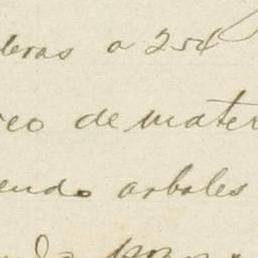 leras a 254
reo de mater
endo arboles